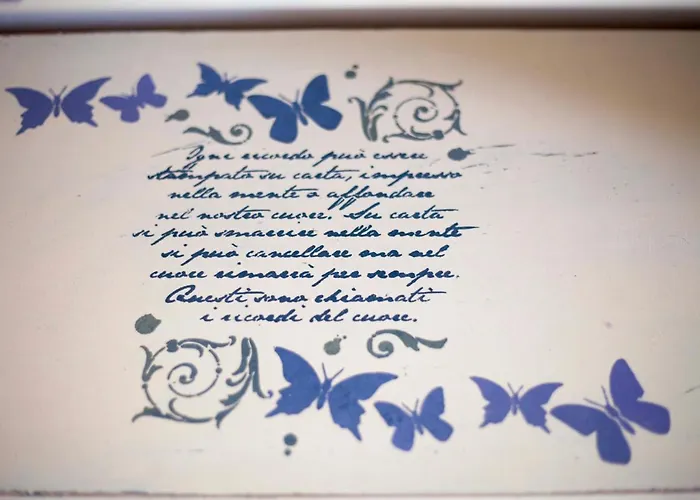 Ogni ricordo può essere
stampato su carta, impresso
nella mente o affondare
nel nostro cuore. Su carta
si può smarrire nella mente
si può cancellare ma nel
cuore rimarrà per sempre.
Questi sono chiamati
i ricordi del cuore.